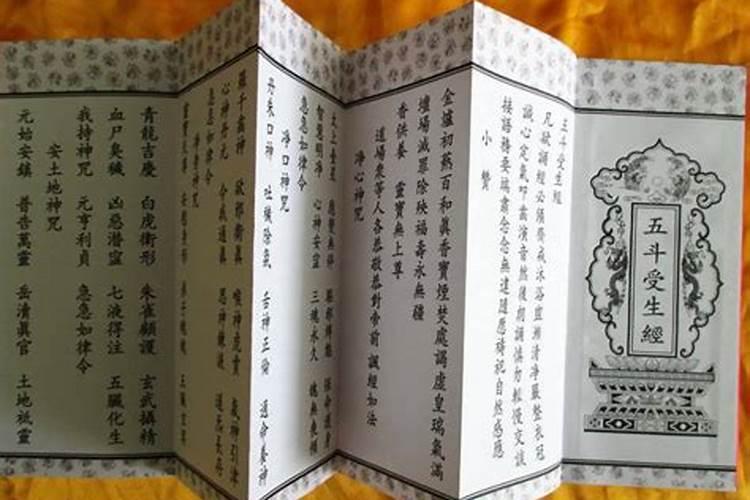 五斗受生經
五斗受生經
凡欲誦經必須齋戒沐浴盥漱清淨嚴整衣冠
誠心定氣叩齒演音然後朗誦慎勿輕慢交談
接語務要端肅念念無違隨愿禱祀自然感應
小贊
金爐初爇百和真香寶煙焚處謁虛皇瑞氣滿
壇場滅罪除殃福壽永無疆
香供養 靈寶無上尊
道場眾等人各恭敬恭對帝前 誦經如法
淨心神咒
太上台星 應變無停 驅邪縛魅 保命護身
智慧明淨 心神安寧 三魂永久 魄無喪傾
急急如律令
淨口神咒
丹朱口神 吐穢除氛 舌神正倫 通命養神
羅千齒神 卻邪衛真 喉神虎賁 氣神引津
心神丹元 令我通真 思神鍊液 道炁長存
急急如律令
淨身神咒
靈寶天尊 安慰身形 弟子魂魄 五臟玄冥
青龍吉慶 白虎衛形 朱雀顧護 玄武攝精
血尸臭穢 凶惡潛窪 七液得注 五臟化生
我持神咒 元亨利貞 急急如律令
安土地神咒
元始安鎮 普告萬靈 岳清真官 土地祗靈